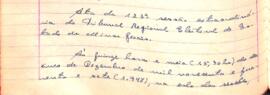 Ata da 123ª sessão extraordiná-
ria do Tribunal Regional Eleitoral do Es-
tado de Minas Gerais.
Às quinze horas e meia (15,30hs) do dia
de Dezembro de mil novecentos e qua-
renta e sete (1.947), na sala das sessões